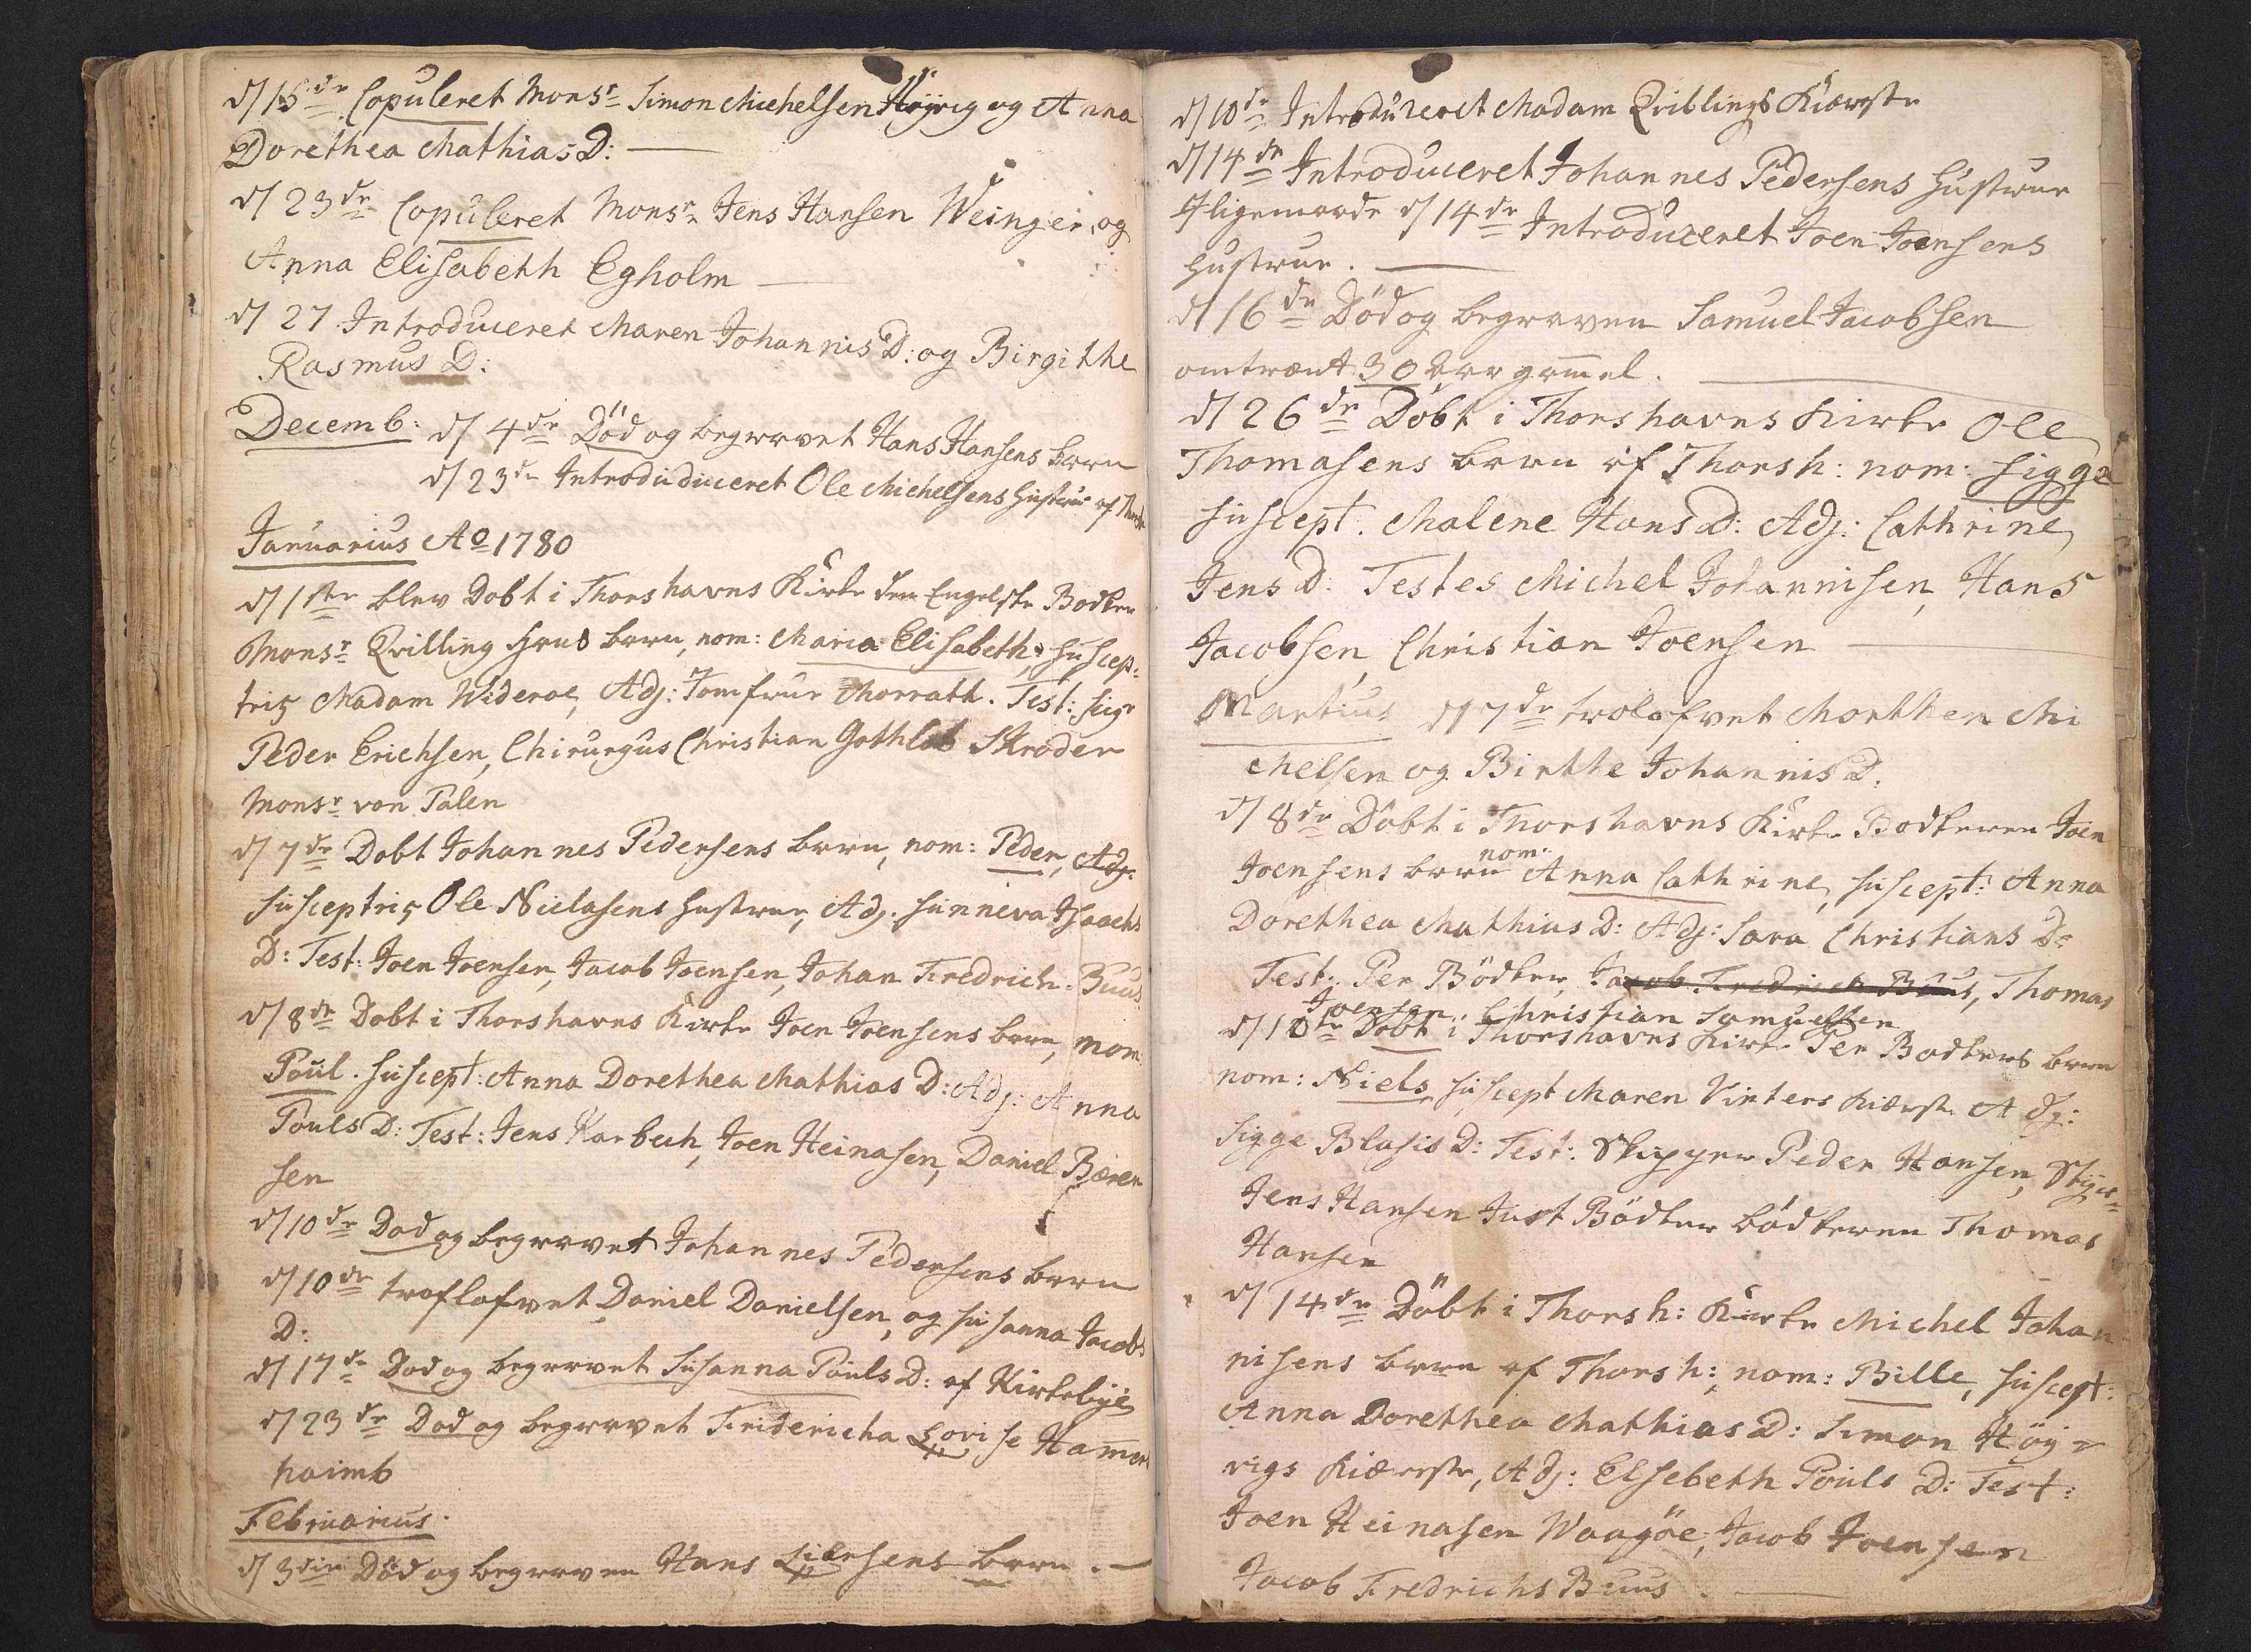 d/ 15de Copuleret Monsr Simon Michelsen Høyvig og Anna
Dorethea Mathias D:
d/ 23de Copuleret Monsr Jens Hansen Weinger, og
Anna Elisabeth Egholm
d/ 27 Introduceret Maren Johannis D: og Birgithe
Rasmus D:
Decemb: d/ 4de Död og begravet Hans Hansens barn
d/ 23de Introduduceret Ole Michelsens Hustrue af
Januarius Ao 1780
d/ 1ste blev Dobt i Thorshavns Kirke den Engelske Bodker
Monsr Qvilling hans barn, nom: Maria Elisabeth, suscep-
trix Madam Wideroe, Adj: Jomfrue Morrath. Test: Sigr
Peder Erichsen, Chirurgus Christian Gothlob Skroder
Monsr von Palen
d/ 7de Dobt Johannes Pedersens barn, nom: Peder, Adj:
susceptrix Ole Nielasens hustrue, Adj: Sunneva Isaachs
D: Test: Joen Joensen, Jacob Joensen, Johan Fredrich Buus
d/ 8de Dobt i Thorshavns Kirke Joen Joensens barn, nom
Poul. suscept: Anna Dorethea Mathias D: Adj: Anna
Pouls D: Test: Jens Karbech, Joen Heinasen, Daniel Bæren
sen
d/ 10de Dod og begravet Johannes Pedersens barn
d/ 10de troflofvet Daniel Danielsen, og Susanna Jacobs
D:
d/ 17de Dod og begravet Susanna Pouls D: af Kirkebye
d/ 23de Dod og begravet Fridericha Lovise Hamers
haimb
Februarius.
d/ 3die Död og begraven Hans Liærsens barn.
d/ 10de Introduceret Madam Qviblings Kiæreste
d/ 14de Introduceret Johannes Pedersens Hustrue
Iligemaade d/ 14de Introduceret Joen Joensens
Hustrue.
d/ 16de Död og begraven Samuel Jacobsen
omtrent 30 Aar gamel.
d/ 26de Döbt i Thorshavns Kirke Ole
Thomasens barn af Thorsh: nom: Sigge
suscept. Malene Hans D: Adj: Cathrine
Jens D: Testes Michel Johannisen, Hans
Jacobsen, Christian Joensen
Martius d/ 7de trolofvet Morthen Mi
chelsen og Birthe Johannis D.
d/ 8de Döbt i Thorshavns Kirke Bodkeren Joen
Joensens barn nom: Anna Cathrine, suscept: Anna
Dorethea Mathius D: Adj: Sara Christians D:
Test: Per Bödker, Jacob Fredrich Buus, Thomas
Joensen, Christian Samuelsen
d/ 10de Dobt i Thorshavns Kirke Per Bodkers barn
nom: Niels, suscept Maren Vinters Kiæreste Adj:
Sigge Blasis D: Test: Skipper Peder Hansen,
Jens Hansen Just Bödker bödkeren Thomas
Hansen
d/ 14de Döbt i Thorsh: Kirke Michel Johan
nisens barn af Thorsh:, nom: Bille, suscept:
Anna Dorethea Mathias D: Simon Höy-
vigs Kiæreste, Adj: Elsebeth Pouls D: Test:
Joen Heinasen Waagöe, Jacob Joensen
Jacob Fredrichs Buus.